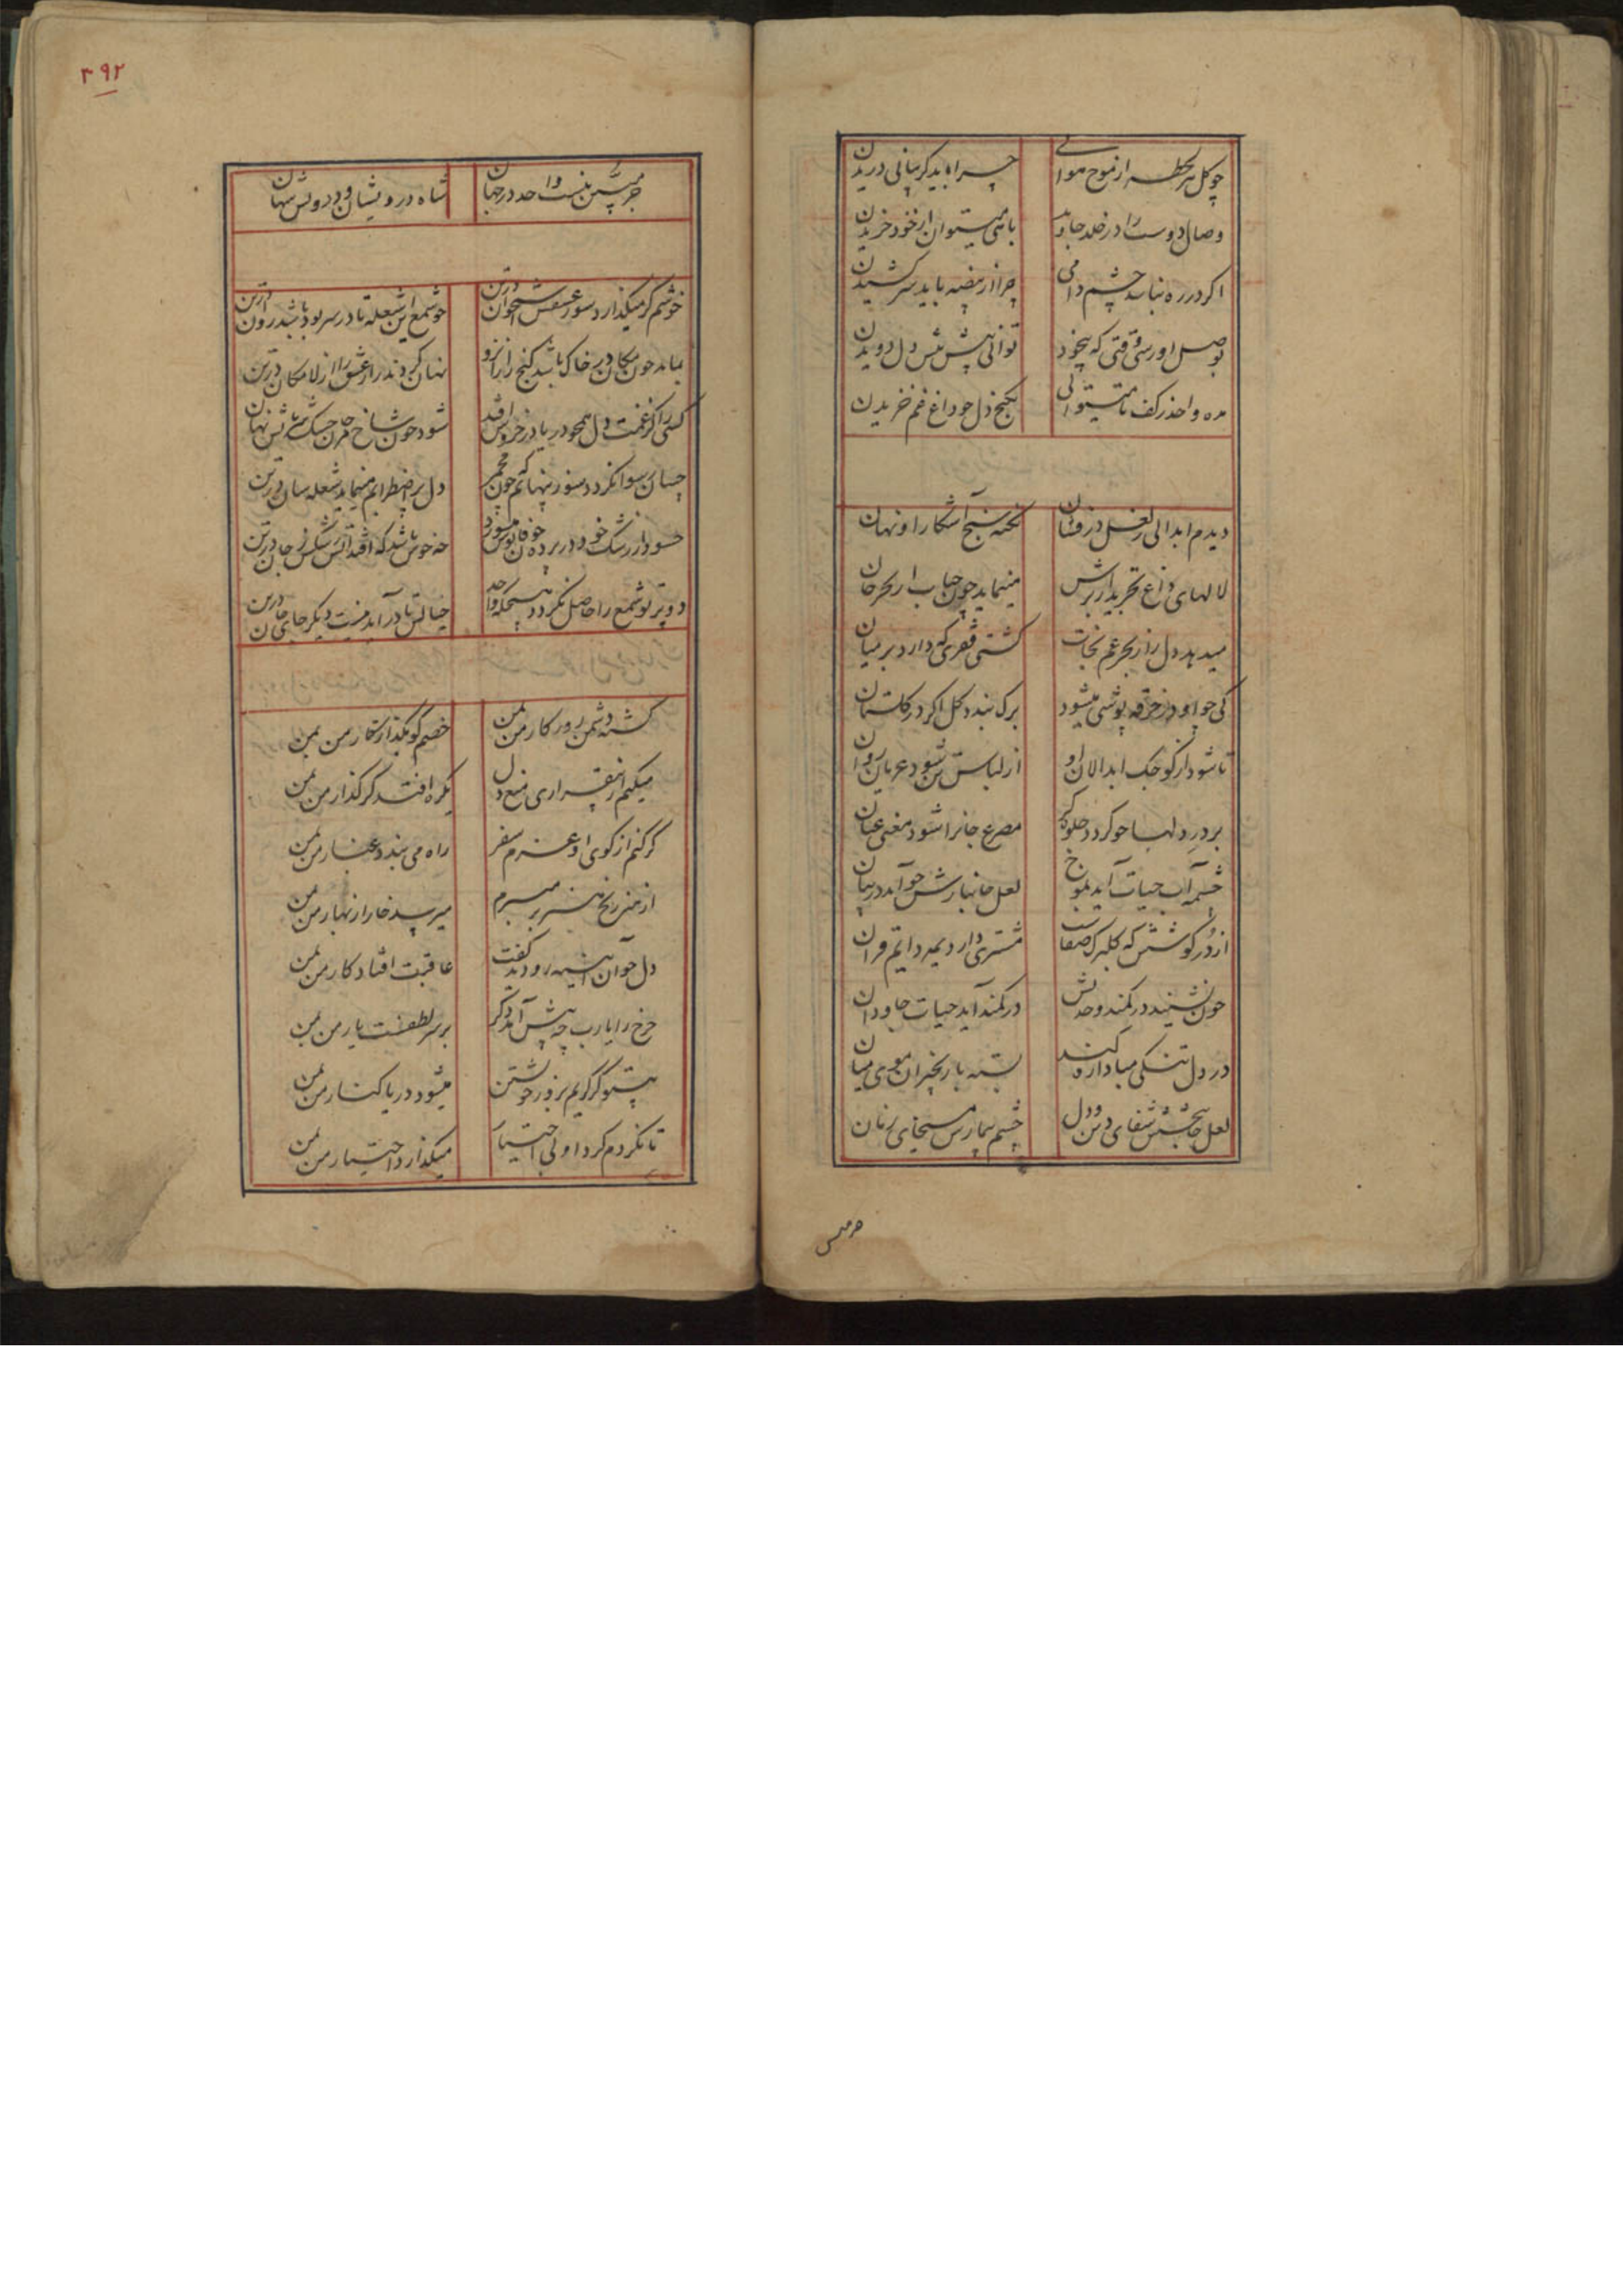 چو کل هر لحظه از موج هوایی چرا باید کریبانی دریدن
وصال دوست را در خلد جاوید بانی میتوان از خود خریدن
اکر در ره نباشد چشم دامی چرا از بیضه باید سر کشیدن
بوصل او رسی وقتی که بیخود توانی پیش پیش دل دویدن
مده واحد ز کف تا میتوانی بکنج دل چو داغ غم خزیدن
دیدم ابدالی در فغان نکته سنج آشکارا و نهان
لالهای داغ تجرید از برش مینماید چون حباب از بحر جان
میدهد دل را ز بحر غم نجات کشتی فقری که دارد بر میان
کی چو او در خرقه پوشی میشود برک بندد کل اکر در کلستان
تا شود از کوچک ابدالان او از لباس تن شود عریان روان
بر در دلها چو کردد جلوه کر مصرع جانرا شود معنی عیان
چشمه آب حیات آید بموج لعل جانبخش چو آید در بیان
از در کوشش که کلبرک صفاست مشتری دارد بمه دایم قران
چون نشیند در کمند وحدتش در کمند آید حیات جاودان
در دل تنکی مبادا ره کند بسته با زنجیر آن موی میان
لعل جانبخشش شفای درد دل چشم بیمارش مسیحای زمان
جرمیش
۳۹۲
نیست واحد در جهان شاه درویشان و درویش شهان
خوشم کر میکدازد سوز عشقش استخوان در تن چو شمع این شعله تا در سر بود باشد روان در تن
نماید چون مکان در خاک باشد کنج راز او نهان کردند راز عشق را از لامکان در تن
کسی را کز غمت دل همچو دریا در خروش افتد شود چون شاخ مرجان خشک نهان
چسان رسوا نکردد سوز پنهانم که چون مجمر دل پر اضطرابم مینماید شعله سان در تن
حسود از رشک خود در پرده چون فانوس میسوزد چه خوش باشد که افتد آتش رشکش ز جان در تن
دو پرتو شمع را حاصل نکردد واحد خیالش تا در آمد نیست دیکر جای جان در تن
کشته دشمن روزکار من بمن خصم کو بکذار کار من بمن
میکنم از بیقراری منع دل کر افتد کر کذار من بمن
کر کنم از کوی او عزم سفر راه می بندد غبار من بمن
از هنر رنج هنر بر میبرم میرسد خار از بهار من بمن
دل چو آن آیینه رو دید کفت عاقبت افتاد کار من بمن
چرخ را یارب چه پیش آمد دکر بر سر لطفست یار من بمن
بیتو کر کریم بزور خویشتن میشود دریا کنار من بمن
تا نکردم کرد او بی اختیار میکذارد اختیار من بمن